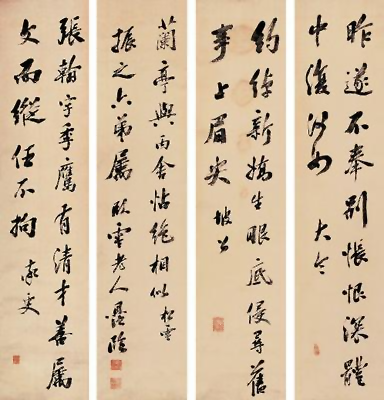 昨遂不奉別悵恨深體
中復何如 大令
約綽新嬌生眼底侵尋舊
事上眉尖 坡公
蘭亭與丙舍帖絶相似 松雪
振之六弟屬 臥雲老人
張翰字季鷹有清才善屬
文而縱任不拘